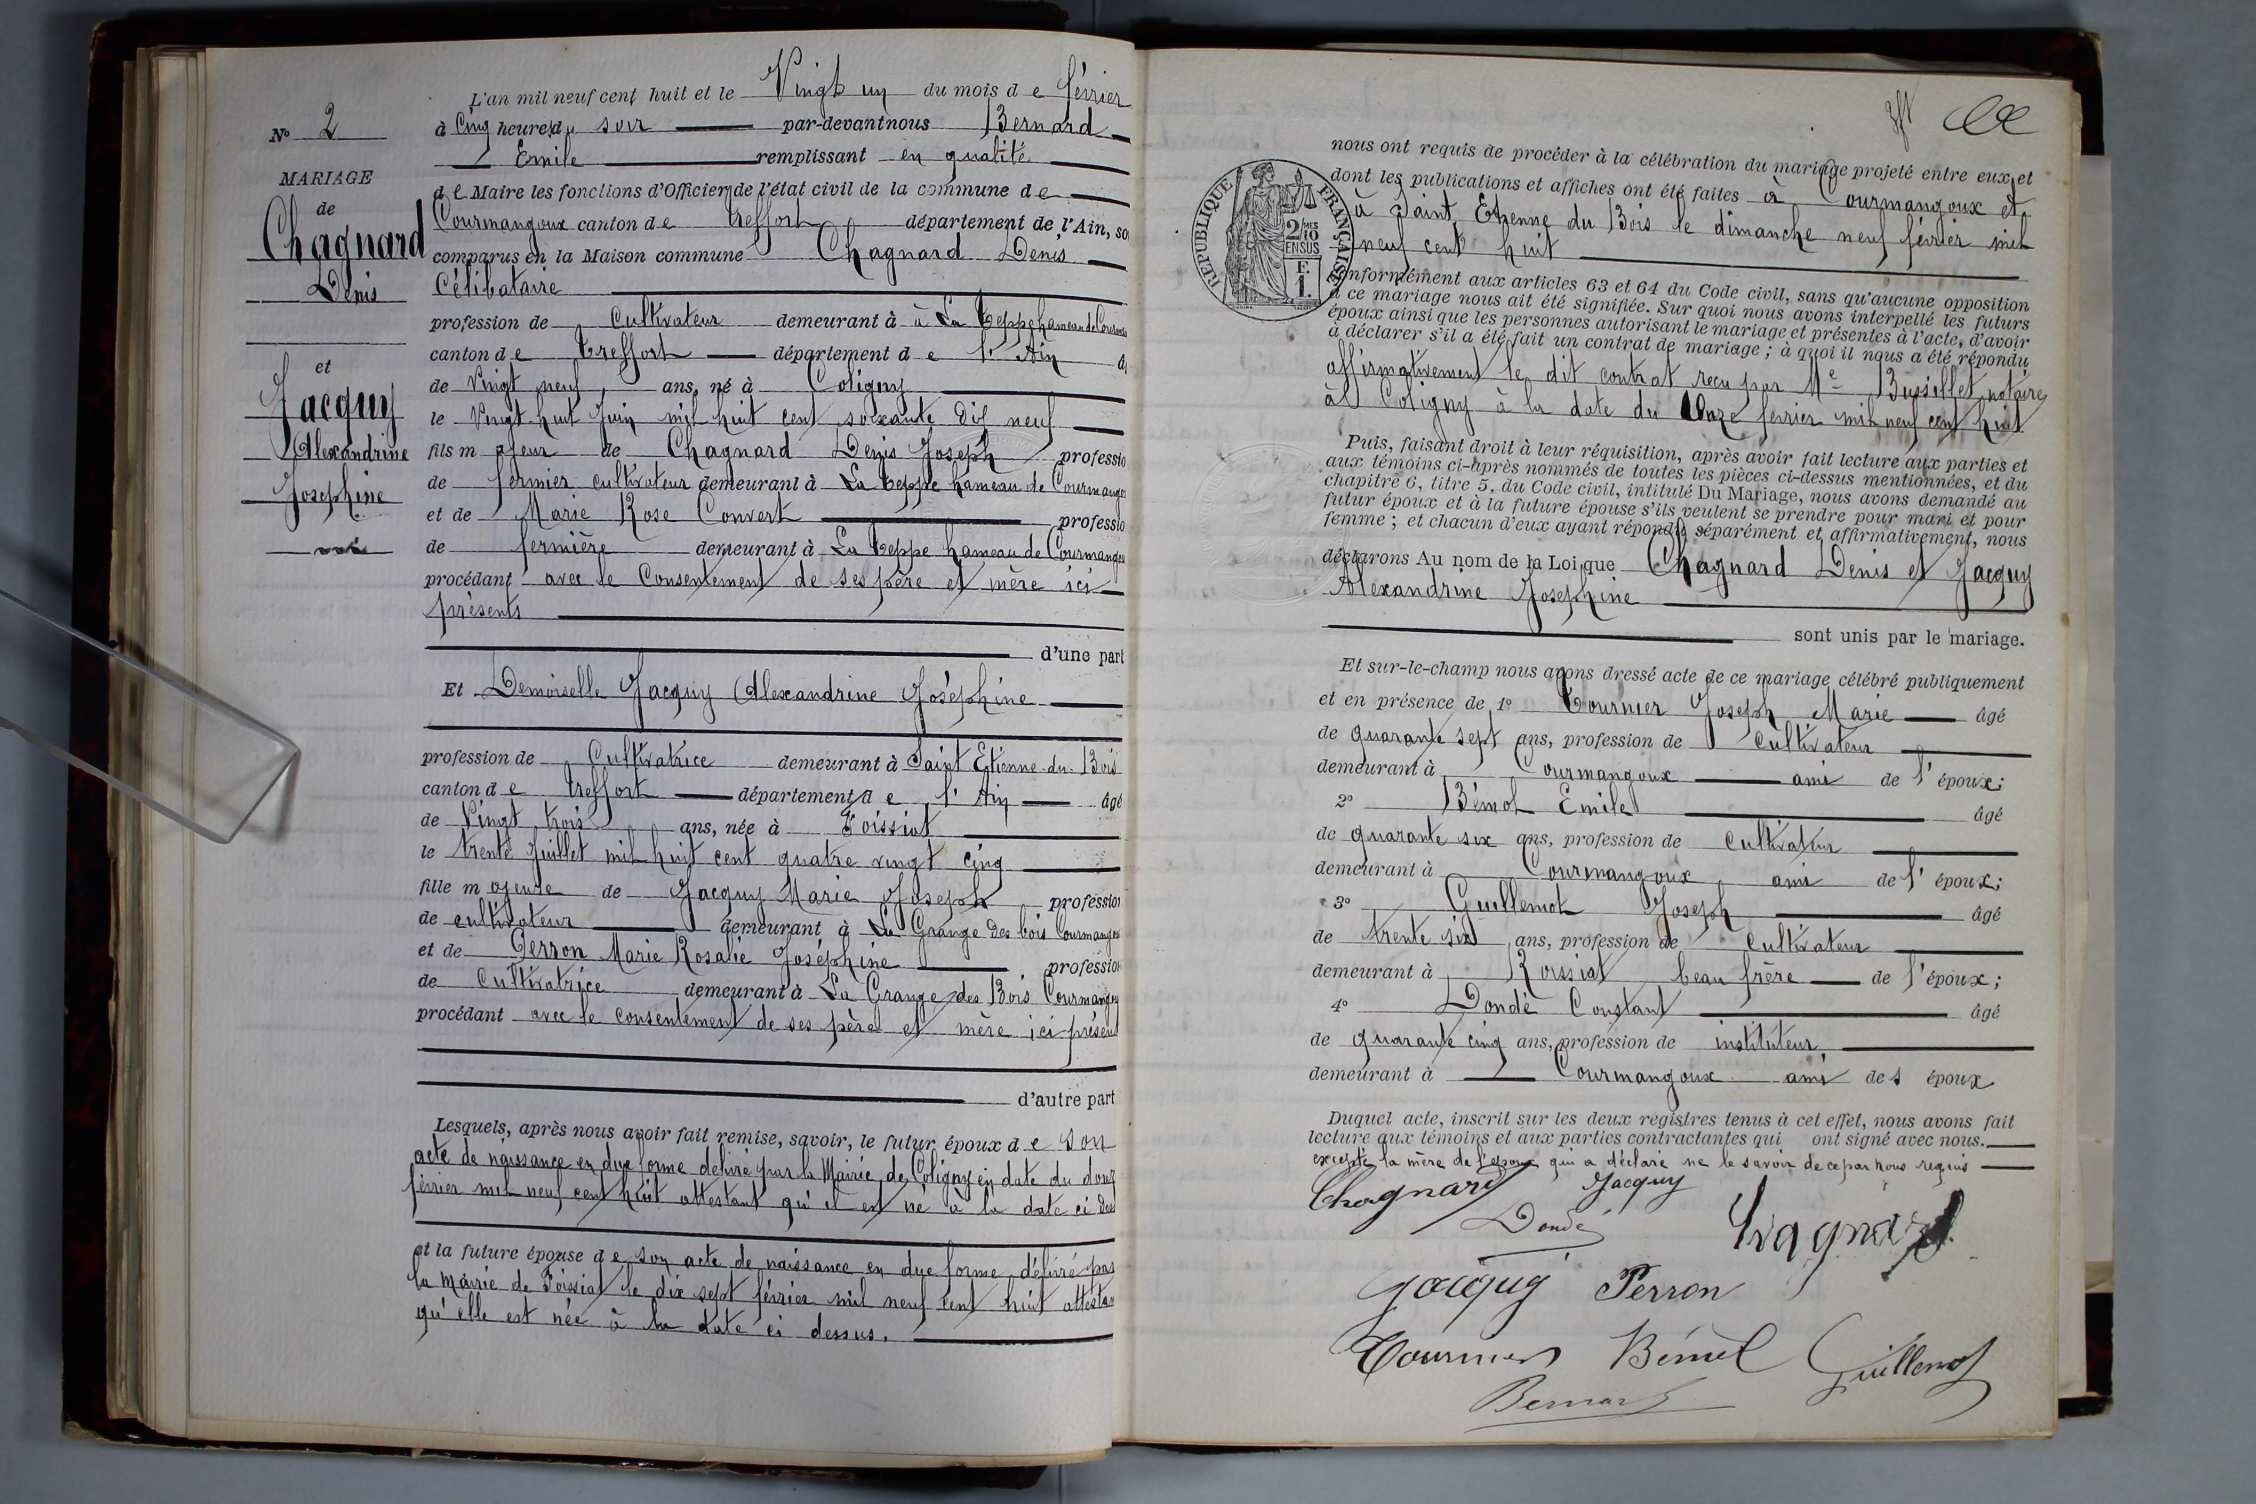 N° 2
MARIAGE
de
Chagnard
Denis
et
Jacquy
Alexandrine
Josephine
L'an mil neuf cent huit et le Vingt un du mois de février
à Cinq heures du soir par-devant nous Bernard
Emile remplissant en qualité
de Maire les fonctions d'Officier de l'état civil de la commune de
Courmangoux canton de Treffort département de l'Ain, so
comparus en la Maison commune Chagnard Denis
Célibataire
profession de Cultivateur demeurant à à La Teppe hameau de
canton de Treffort département de l'Ain
de Vingt neuf ans, né à Coligny
le Vingt huit Juin mil huit cent soixante dix neuf
fils majeur de Chagnard Denis Joseph professio
de fermier cultivateur demeurant à La Teppe hameau de Courmangou
et de Marie Rose Convert professio
de fermière demeurant à La Teppe hameau de Courmangou
procédant avec le Consentement de ses père et mère ici
présents
d'une part
Et Demoiselle Jacquy Alexandrine Joséphine
profession de Cultivatrice demeurant à Saint Etienne-du-Bois
canton de Treffort département de l'Ain âgé
de Vingt trois ans, née à Poissiat
le trente Juillet mil huit cent quatre vingt cinq
fille majeure de Jacquy Marie Joseph profession
de cultivateur demeurant à La Grange des bois Courmangou
et de Perron Marie Rosalie Joséphine profession
de Cultivatrice demeurant à La Grange des Bois Courmangou
procédant avec le consentement de ses père et mère ici présent
d'autre part
Lesquels, après nous avoir fait remise, savoir, le futur époux de son
acte de naissance en due forme délivré par la Mairie de Coligny en date du douz
février mil neuf cent huit attestant qu'il est né à la date ci des
et la future épouse de son acte de naissance en due forme délivré par
la mairie de Poissiat le dix sept février mil neuf cent huit attestan
qu'elle est née à la date ci dessus.
REPUBLIQUE FRANÇAISE
2/10 MES
EN SUS
F.
1.
nous ont requis de procéder à la célébration du mariage projeté entre eux et
dont les publications et affiches ont été faites à Courmangoux et
à Saint Etienne du Bois le dimanche neuf février mil
neuf cent huit
conformément aux articles 63 et 64 du Code civil, sans qu'aucune opposition
à ce mariage nous ait été signifiée. Sur quoi nous avons interpellé les futurs
époux ainsi que les personnes autorisant le mariage et présentes à l'acte, d'avoir
à déclarer s'il a été fait un contrat de mariage ; à quoi il nous a été répondu
affirmativement le dit contrat reçu par Me Busiellet notaire
à Coligny à la date du Onze fevrier mil neuf cent huit
Puis, faisant droit à leur réquisition, après avoir fait lecture aux parties et
aux témoins ci-après nommés de toutes les pièces ci-dessus mentionnées, et du
chapitre 6, titre 5, du Code civil, intitulé Du Mariage, nous avons demandé au
futur époux et à la future épouse s'ils veulent se prendre pour mari et pour
femme ; et chacun d'eux ayant répondu séparément et affirmativement, nous
déclarons Au nom de la Loi que Chagnard Denis et Jacquy
Alexandrine Josephine
sont unis par le mariage.
Et sur-le-champ nous avons dressé acte de ce mariage célébré publiquement
et en présence de 1° Tournier Joseph Marie âgé
de quarante sept ans, profession de cultivateur
demeurant à Courmangoux ami de l'époux;
2° Bémol Emile âgé
de quarante six ans, profession de cultivateur
demeurant à Courmangoux ami de l'époux;
3° Guillemot Joseph âgé
de trente six ans, profession de cultivateur
demeurant à Roissiat beau frère de l'époux;
4° Dondé Constant âgé
de quarante cinq ans, profession de instituteur
demeurant à Courmangoux ami des époux
Duquel acte, inscrit sur les deux registres tenus à cet effet, nous avons fait
lecture aux témoins et aux parties contractantes qui ont signé avec nous.
excepté la mère de l'époux qui a déclaré ne le savoir de ce par nous requis
Chagnard Jacquy
Dondé
Chagnard
Jacquy Perron
Tournier Bémol Guillemot
Bernard